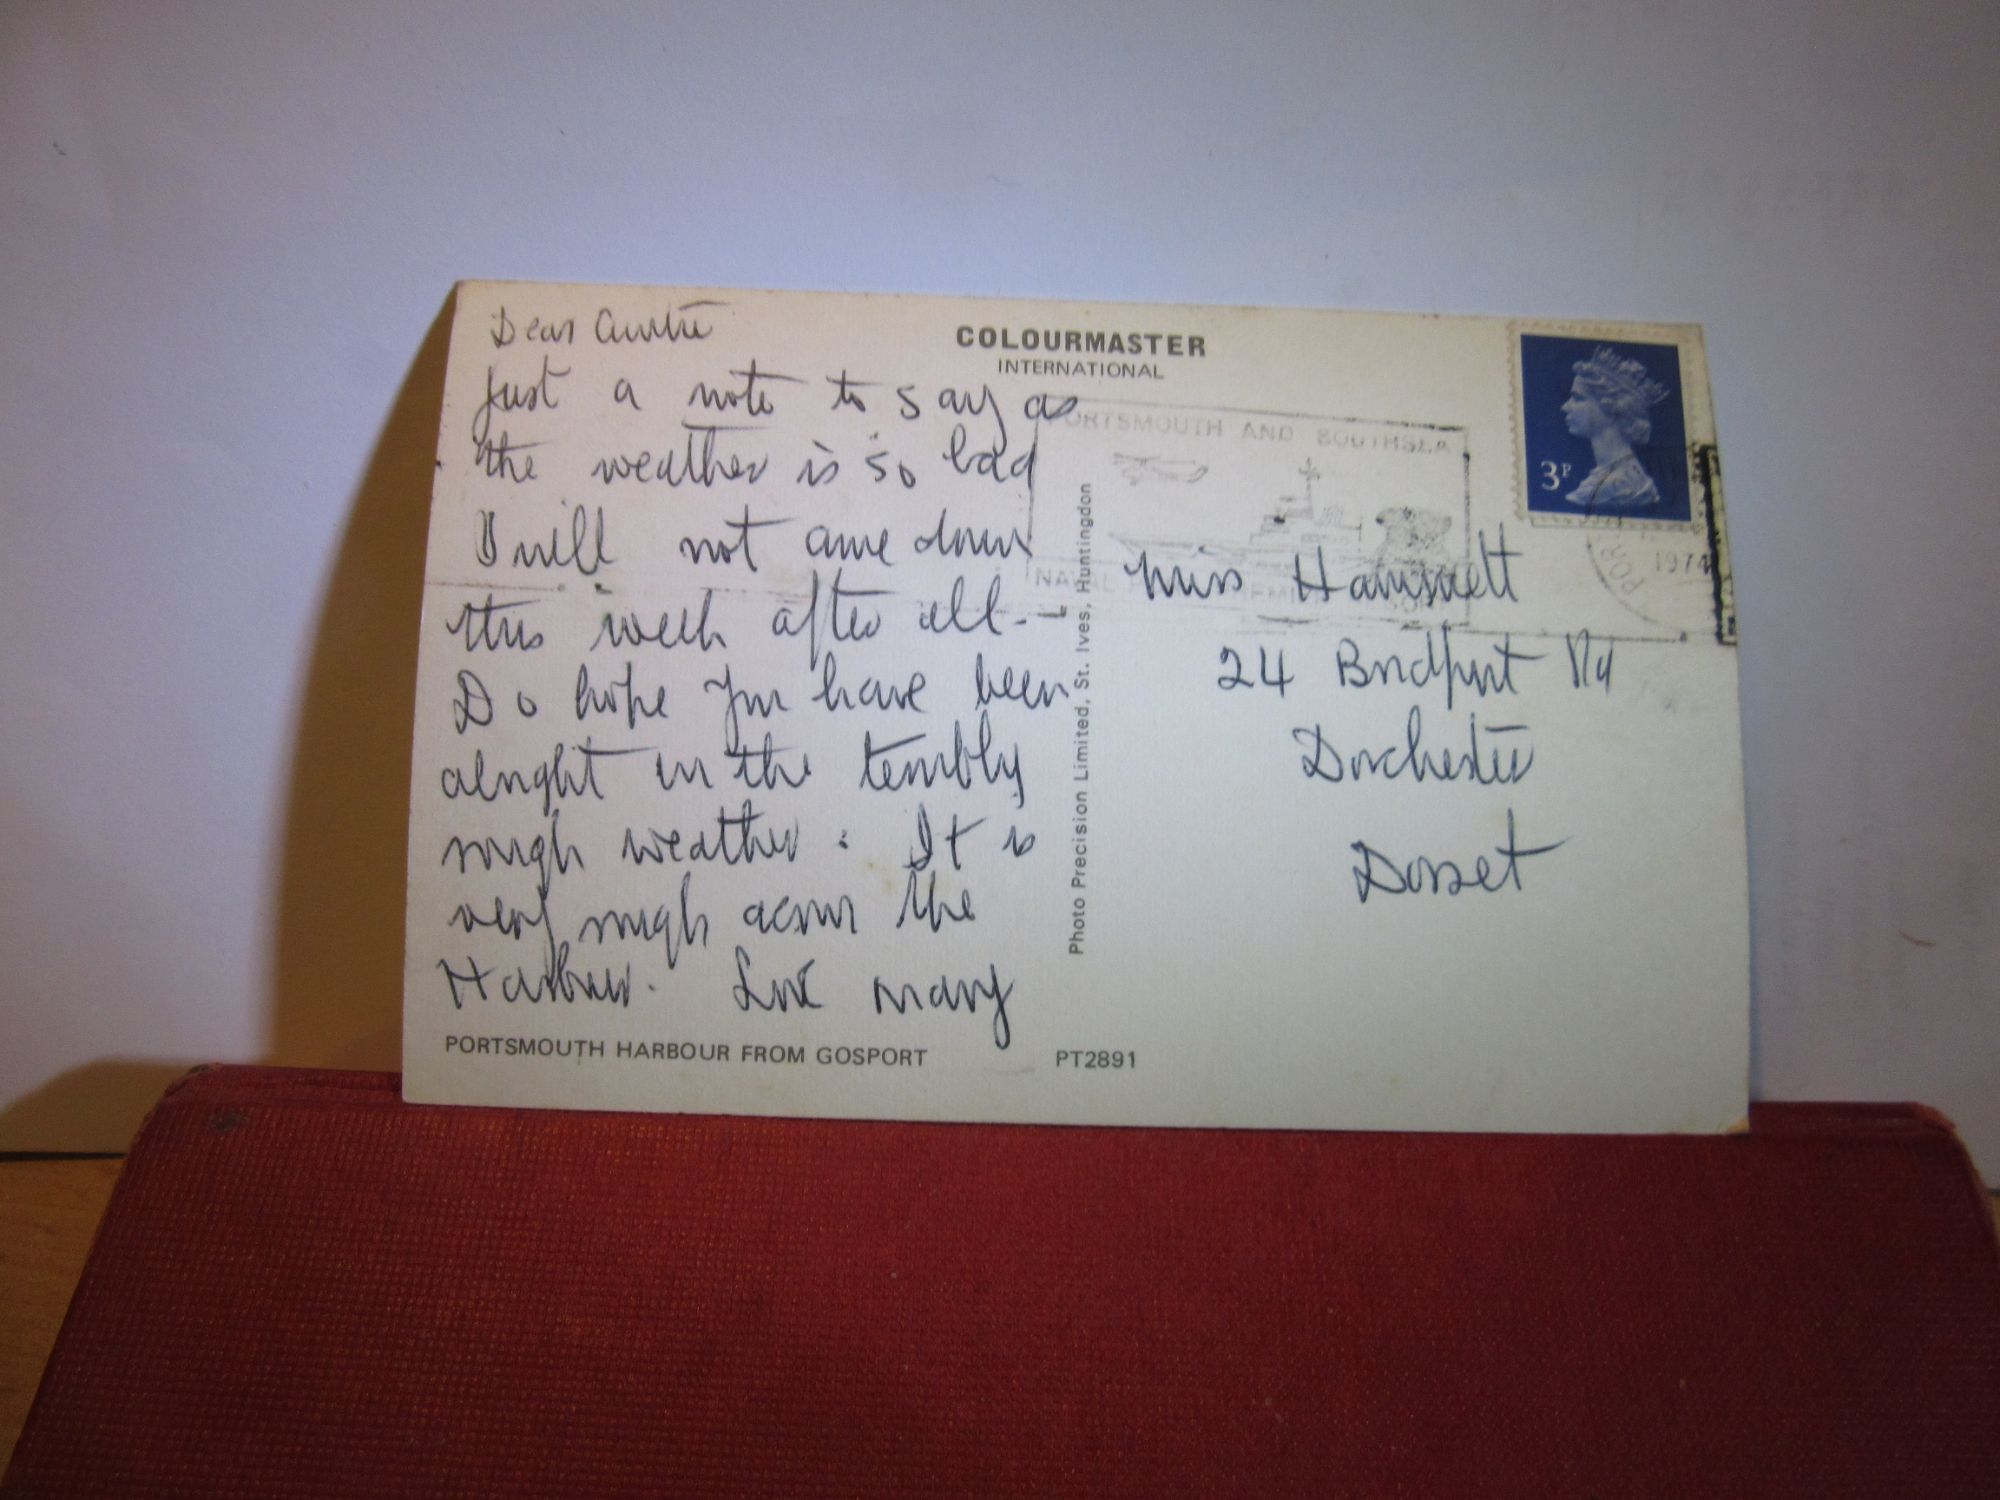 Dear Auntie
Just a note to say as
the weather is so bad
I will not come down
this week after all -
Do hope you have been
alright in the terribly
rough weather. It is
very rough across the
Harbour. Love Mary
PORTSMOUTH HARBOUR FROM GOSPORT
PT2891
COLOURMASTER
INTERNATIONAL
Photo Precision Limited, St. Ives, Huntingdon
PORTSMOUTH AND SOUTHSEA
NAVAL
3P
1974
Miss Hamnett
24 Bridport Rd
Dorchester
Dorset